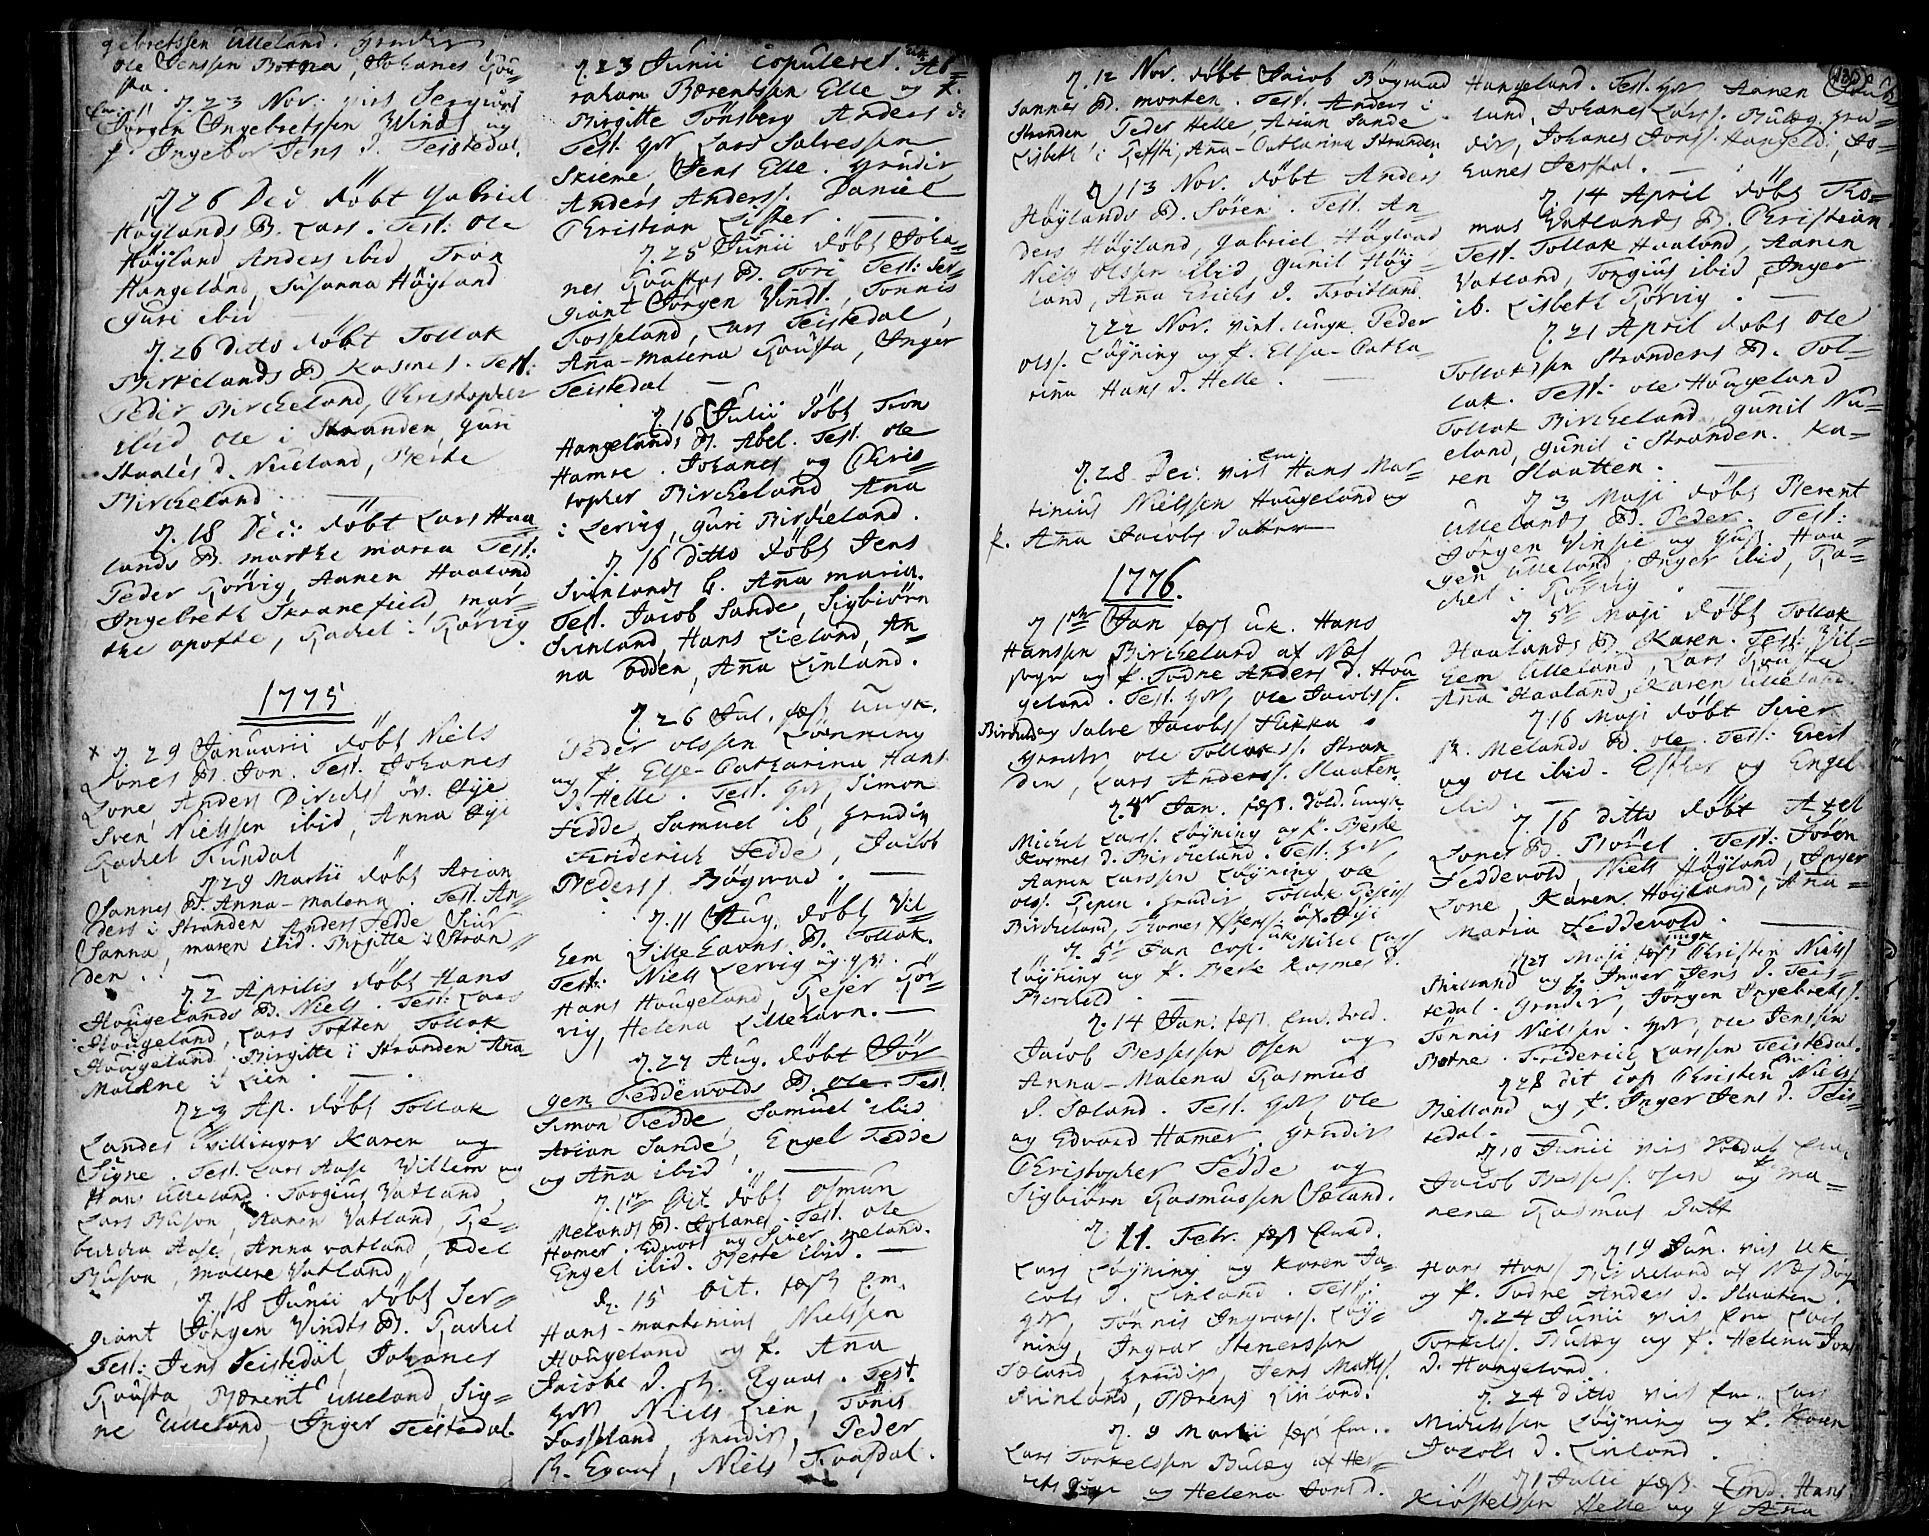 gebretssen Ulleland.
Ole Jenssen Botna, Johanes Rou-
sta.
d. 23 Nov: viet Sergiant
Jørgen Ingebretssen Windt og
p. Ingebor Jens d. Teistedal.
d. 26 Dec døbt Gabriel
Høylands B. Lars. Test: Ole
Høyland Anders ibid Tron
Hangeland, Susanna Høyland
Guri ibid
d. 26 ditto døbt Tollak
Birkelands B Rasmus. Test:
Peder Bircheland, Christopher
ibid Ole i Stranden, Guri
Staales d. Nueland, Berte
Bircheland.
d. 18 Dec: døbt Lars Haa
lands B. Marthe Maria Test:
Peder Rørvig, Aanen Haaland
Ingebreth Skranefield, Mar-
the Apofte, Rachel i Rørvig.
1775
x d. 29 Januarii døbt Niels
Lones B. Jon. Test. Johanes
Lone, Anders Dirchs, øv. Øye
Sven Nielssen ibid, Anna Øye
Rachel Sundal
d. 29 Martii døbt Arian
Sannes B. Anna-Malena. Test. An-
ders i Stranden Anders Fedde Siur
Sanna, Maren ibid. Birgitte i Stran
den.
d. 2 Aprilis døbt Hans
Hougelands B. Niels. Test: Lars
Hougeland, Lars Toften Tollak
Hougeland. Birgitte i Stranden Ana
Malene i Lien.
d. 23 Ap. døbt Tollak
Landes Tvillinger Karen og
Signe. Test. Lars Aase Willem og
Hans Ulleland. Torgius Vatland
Lars Buson, Karen Vatland, Re-
becka Aase, Anna Vatland, Edel
Buson, Malene Vatland
d. 18 Junii døbt Ser-
giant Jørgen Vindts B. Rachel
Test: Jens Teistedal, Johanes
Rousta, Bærent Ulleland, Sig-
ne Ulleland, Inger Teistedal.
d. 23 Junii Copuleret. Ab-
raham Bærentssen Elle og p.
Birgitte Tønsberg Anders d.
Test. Lars Salvessen
Skieme, Jens Elle.
Anders Anders. Daniel
Christian Lister.
d. 25 Junii døbt Joha-
nes Roustas B. Tori Test: Ser-
giant Jørgen Vindt, Tønnis
Fosseland, Lars Teistedal,
Ana-Malena Rousta, Inger
Teistedal
d. 16 Julii døbt Tron
Hangelands B. Abel. Test. Ole
Hamre. Johanes og Chris-
topher Bircheland, Ana
i Lervig, Guri Bircheland.
d. 16 ditto døbt Jens
Svinlands B. Ana Maria.
Test. Jacob Sande, Sigbiørn
Svinland, Hans Lieland, An-
na Odden, Ana Linland.
d. 26 Jul. fæst ungk.
Peder Olssen Løyning
og p. Else-Catharina Hans
d. Helle. Test. Simon
Fedde, Samuel ib,
Friderich Fedde, Jacob
Peders. Bøgwad.
d. 11 Aug. døbt Vil-
hem Lillehavns B. Tollak.
Test: Niels Lervig og
Hans Hougeland, Rejer Rør-
vig, Helena Lillehavn.
d. 27 Aug. døbt Jør
gen Feddewolds B. Ole. Test
Simon Fedde, Samuel ibid
Arian Sande, Engel Fedde
og Ana ibid.
d. 1ste Oct døbt Osmun
Melands B. Test. Ole
Hamer. Edvort og Siver Meland.
Engel ibid. Berte ibid.
d. 15 Oct. fæst Em.
Hans-Martinius Nielssen
Hougeland og p. Ana
Jacobs d. Egaas. Test
Niels Lien, Tønis
Fosseland, Peder
Egaas, Niels
d. 12 Nov. døbt Jacob Bøgwad
Sannes B. Morten. Test. Anders i
Stranden Peder Helle, Arian Sande
Lisbeth i Refsti, Ana-Catharina Stranden
d. 13 Nov. døbt Anders
Høylands B. Søren. Test. An-
ders Høyland, Gabriel Høyland
Niels Olssen ibid, Gunil Høy-
land, Ana Erichs d. Frøitland.
d. 22 Nov. viet. ungk. Peder
Olss. Løyning og p. Elsa-Catha-
rina Hans d. Helle.
d. 28 Dec. viet Em Hans Mar-
tinius Nielssen Hougeland og
p. Ana Jacobs datter
1776.
d 1ste Jan fæst uk. Hans
Hanssen Bircheland af Næs
sogn og p. Todne Anders d. Hou
geland. Test. Ole Jacobss.
Birchel. og Salve Jacobs Flikka.
Ole Tollaks. Stran
den, Lars Anders. Slaaten.
d. 4de Jan. fæst. Sold. ungk
Michel Larss. Løyning og p. Berte
Rasmus d. Bircheland. Test.
Aanen Larssen Løyning Ole
Olss. Repen.
Bircheland,
Jan cop. uk. Mikel Lars
Løyning og p. Berte Rasmus d.
Bircheld.
d. 14 Jan. fæst Em. Sold.
Jacob Bessessen Osen og
Anna-Malena Rasmus
d. Sæland. Test. Ole
og Edvord Hamer.
Christopher Fedde og
Sigbiørn Rasmussen Sæland.
d. 11. Febr. fæst Emd.
Lars Løyning og Karen Ja-
cobs d. Linland. Test.
Tønnis Ingvars. Løy-
ning, Ingvar Stenerssen
Sæland, Jens Matts.
Svinland, Bærent Linland.
d. 9 Martii fæst Em.
Lars Torkelssen Bulæg af Her-
og Helena Jons d.
130
Hangeland. Test. Aanen
land, Johanes Larss. Bulæg,
Johanes Jonss. Hangeld, Jo-
hanes Jerstal.
d. 14 April døbt Tho-
mas Vatlands B. Christian
Test. Tollak Haaland, Aanen
Vatland, Torgius ibid, Inger
ib. Lisbeth Rørvig.
d. 21 April døbt Ole
Tollakssen Strandens B. Tol-
lak. Test: Ole Hougeland
Tollak Bircheland Gunil Nu-
eland, Gunil i Stranden. Ka-
ren Slaatten.
d 3 Maji døbt Berent
Ullelands B. Peder. Test:
Jørgen Vinsie og
Ulleland, Inger ibid, Ra-
chel i Rørvig
d 5te Maji døbt Tollak
Haalands B. Karen. Test: Vil-
hem Ulleland, Lars Rousta
Ana Haaland, Karen Ulleland.
d 16 Maji døbt Siver
Melands B. Ole. Test: Evert
og Ole ibid. Esther og Engel
ibid.
d. 16 ditto døbt Axel
Lones B. Test: Søren
Feddevold, Niels Høyland, Inger
Lone Karen Høyland, Ana-
Maria Feddevold.
d 27 Maji fæst ungk Christen Niels
Bielland og p. Inger Jens d. Teis-
tedal. Jørgen Ingebrets.
Tønnis Nielssen. Ole Jenssen
Botne. Friderich Larssen Teistedal.
d 28 dit cop Em Christen Niels
Bielland og p. Inger Jens d. Teis-
tedal.
d 10 Junii viet Soldat Em
Jacob Besses. Osen og Ma-
rene Rasmus Datt
d 19 Jun. viet Uk
Hans Hans Bircheland af Næs Sogn
og p. Todne Anders d. Slaaten.
d. 24 Junii viet Em Lars
Torkels. Bulæg og p. Helena Jons
d. Hangeland.
d. 24 ditto viet Em. Lars
Michelssen Løyning og p. Karen
Jacobs d. Linland.
d 1 Julii fæst. Emd. Hans
Kiøstelssen Helle og p Ana